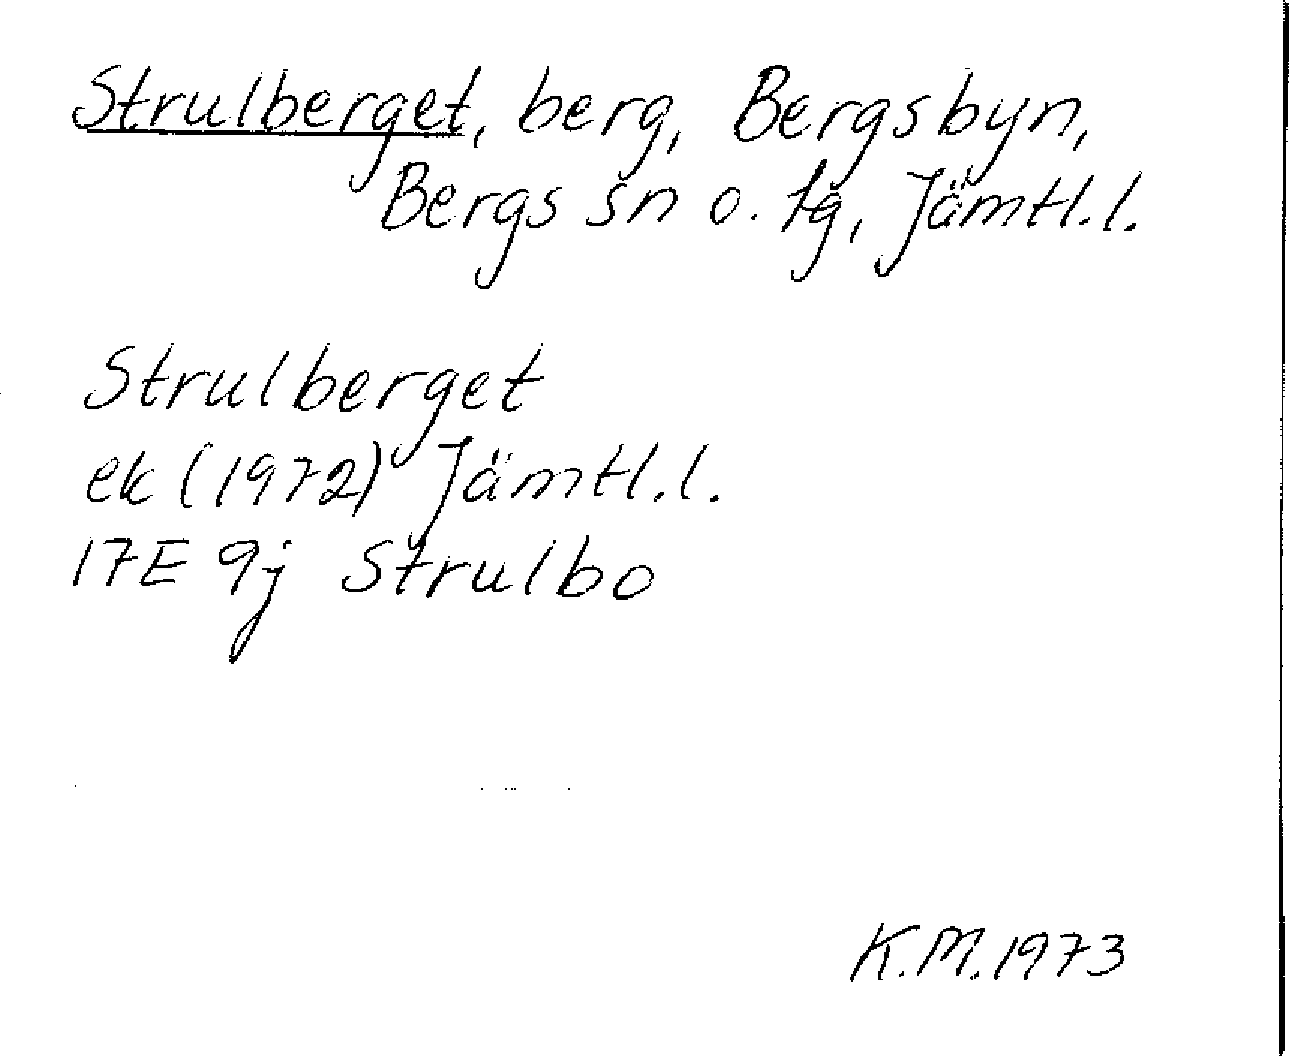 Strulberget, berg, Bergsbyn,
Bergs sn o. tg, Jämtl.l.
Strulberget
ek (1972) Jämtl.l.
17E 9j Strulbo
K.M. 1973